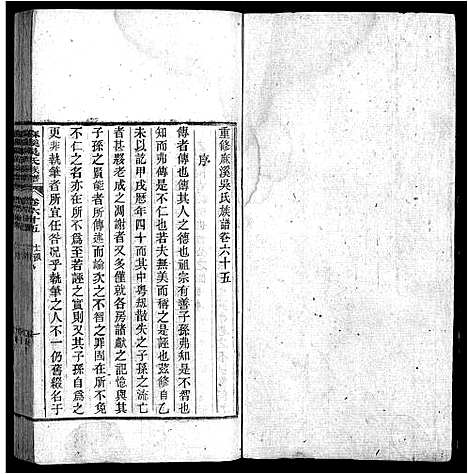 重修麻溪吳氏族譜卷六十五
序
傳者傳也傳其人之德也祖宗有善子孫弗知是不智也
知而弗傳是不仁也若夫無美而稱之是誣也茲修自乙
未以訖甲戌歷年四十而其中粵刼散失之子孫之流亡
者甚夥老成之凋謝者又多僅就各房諸獻之記憶與其
子孫之賢能者所傳述而論次之不智之罪固在所不免
不仁之名亦在所不爲至若誣之實則又其子孫自爲之
更非執筆者所宜任咎況乎執筆之人不一仍舊綴名于
麻溪吳氏族譜
卷六十五